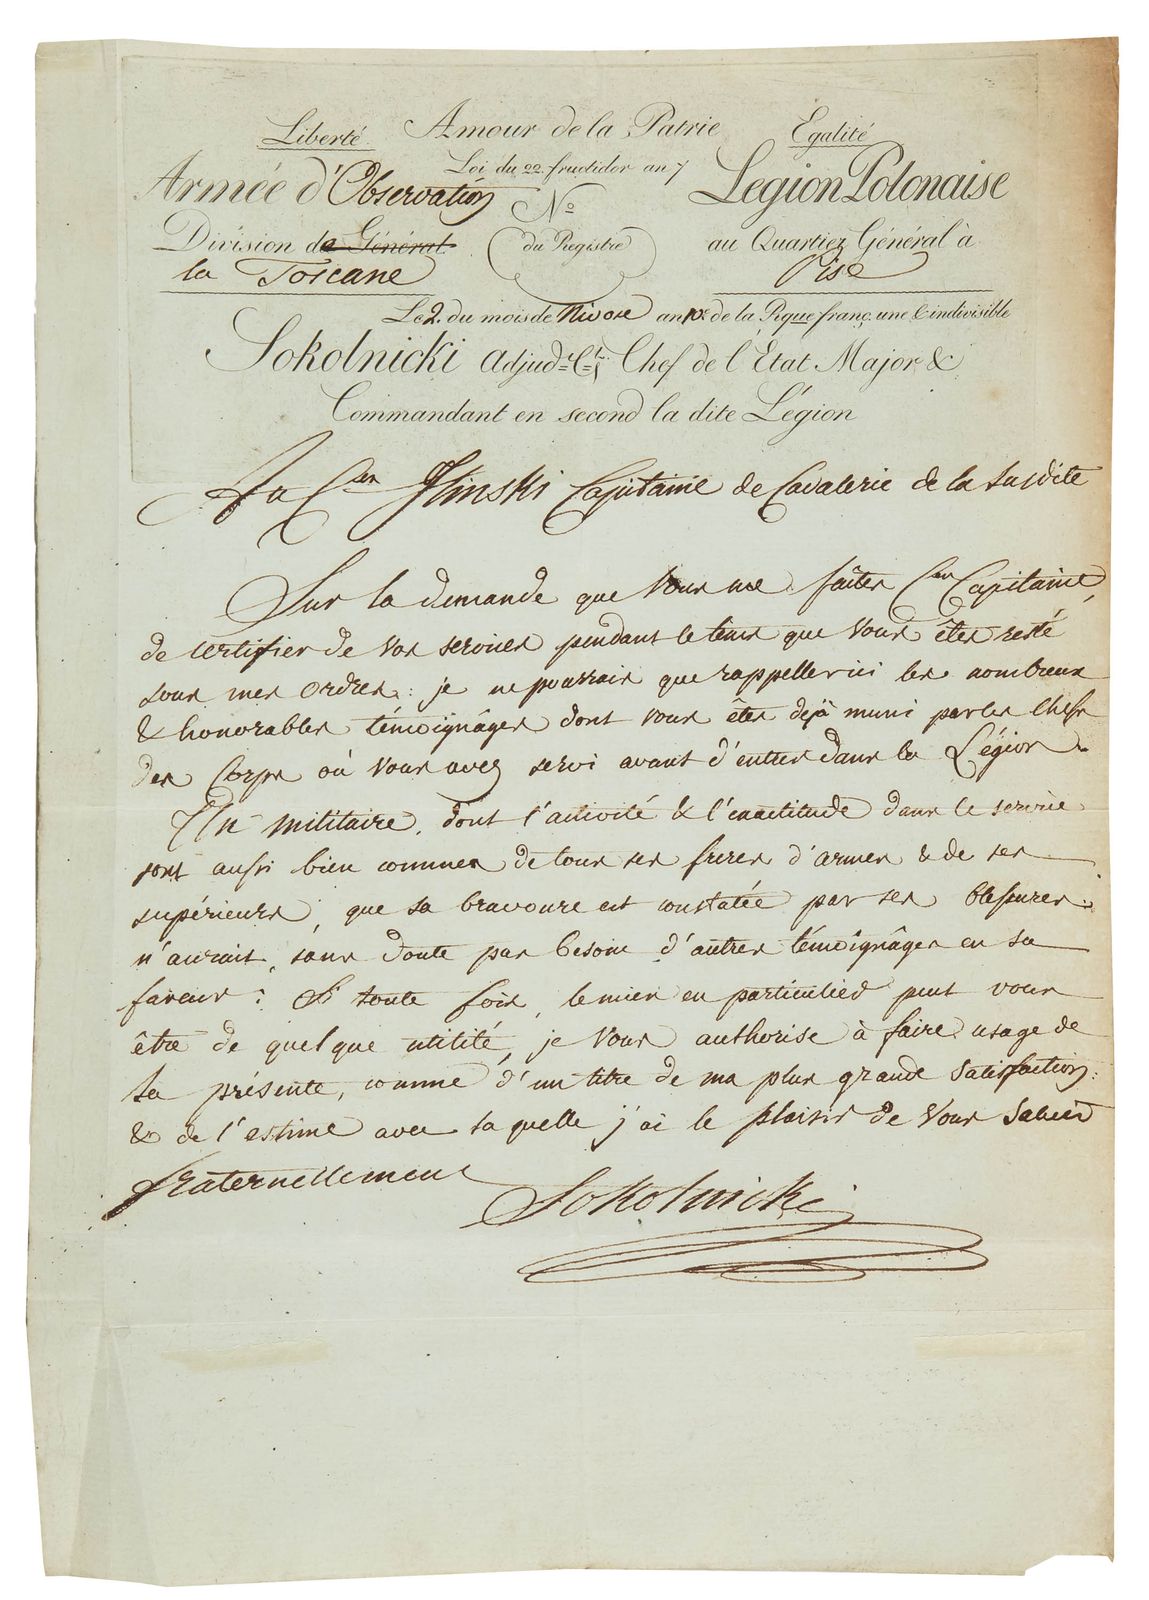 Liberté Amour de la Patrie Egalité
Loi du 22 fructidor an 7
Armée d'Observation Nº Legion Polonaise
Division de Général du Registre au Quartier Général à
la Toscane Pise
Le 2. du mois de Nivose an 10e de la Rque franç. une & indivisible
Sokolnicki Adjud= Ct Chef de l'Etat Major &
Commandant en second la dite Légion
Au Cen Ilinski Capitaine de Cavalerie de la susdite
Sur la demande que vous me faites Cen Capitaine,
de certifier de vos services pendant le tems que vous êtes resté
sous mes ordres: je ne pourrais que rappeller ici les nombreux
& honorables témoignâges dont vous êtes déjà muni par les chefs
des Corps où vous avez servi avant d'entrer dans la Légion.
Un militaire, dont l'activité & l'exactitude dans le service
sont aussi bien connues de tous ses frères d'armes & de ses
supérieurs, que sa bravoure est constatée par ses blessures:
n'aurait, sans doute pas besoin d'autres témoignâges en sa
faveur: Si toute fois, le mien en particulier peut vous
être de quelque utilité, je vous authorise à faire usage de
la présente, comme d'un titre de ma plus grande satisfaction:
& de l'estime avec laquelle j'ai le plaisir de vous saluer
fraternellement
Sokolnicki